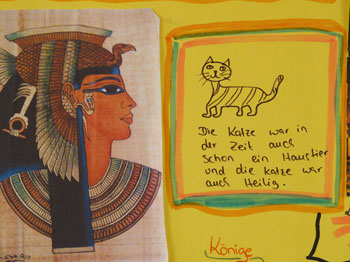 Die Katze war in
der Zeit auch
schon ein Haustier
und die Katze war
auch Heilig.
Könige